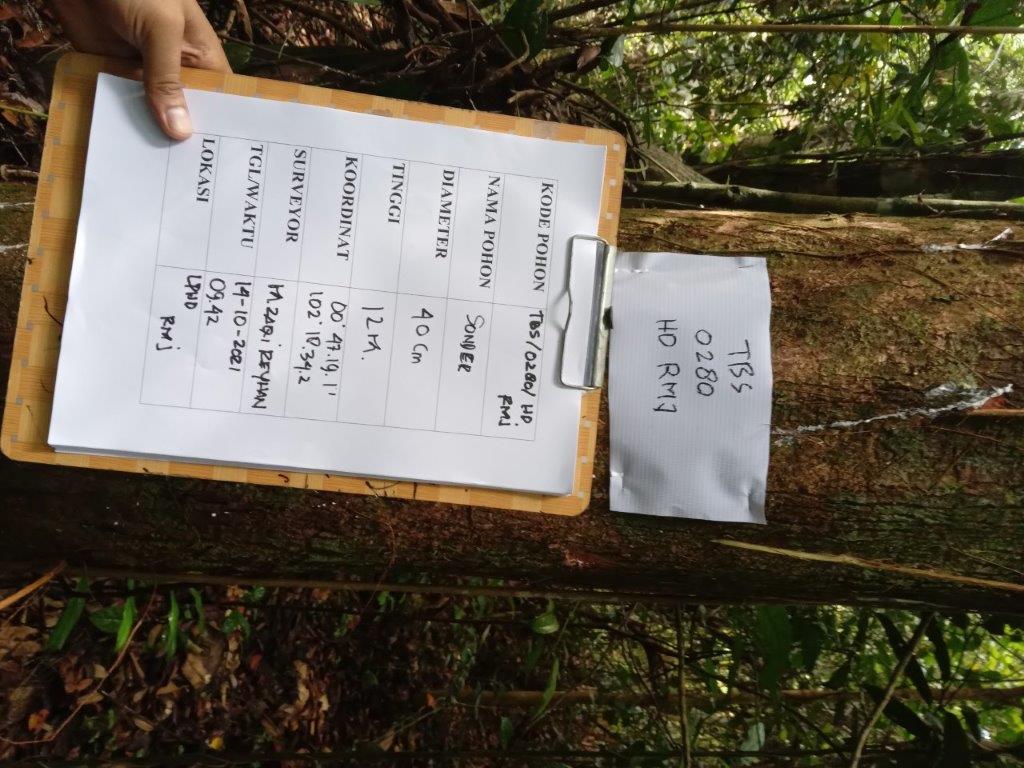 TBS
0280
HD RMJ
KODE POHON TBS/0280/HD
RMj
NAMA POHON SONDER
DIAMETER 40 Cm
TINGGI 12 M.
KOORDINAT 00°47.19,11
102°10.34,2
SURVEYOR M.ZAQi REYHAN
TGL/WAKTU 19-10-2021
09,42
LOKASI LPHD
RMj